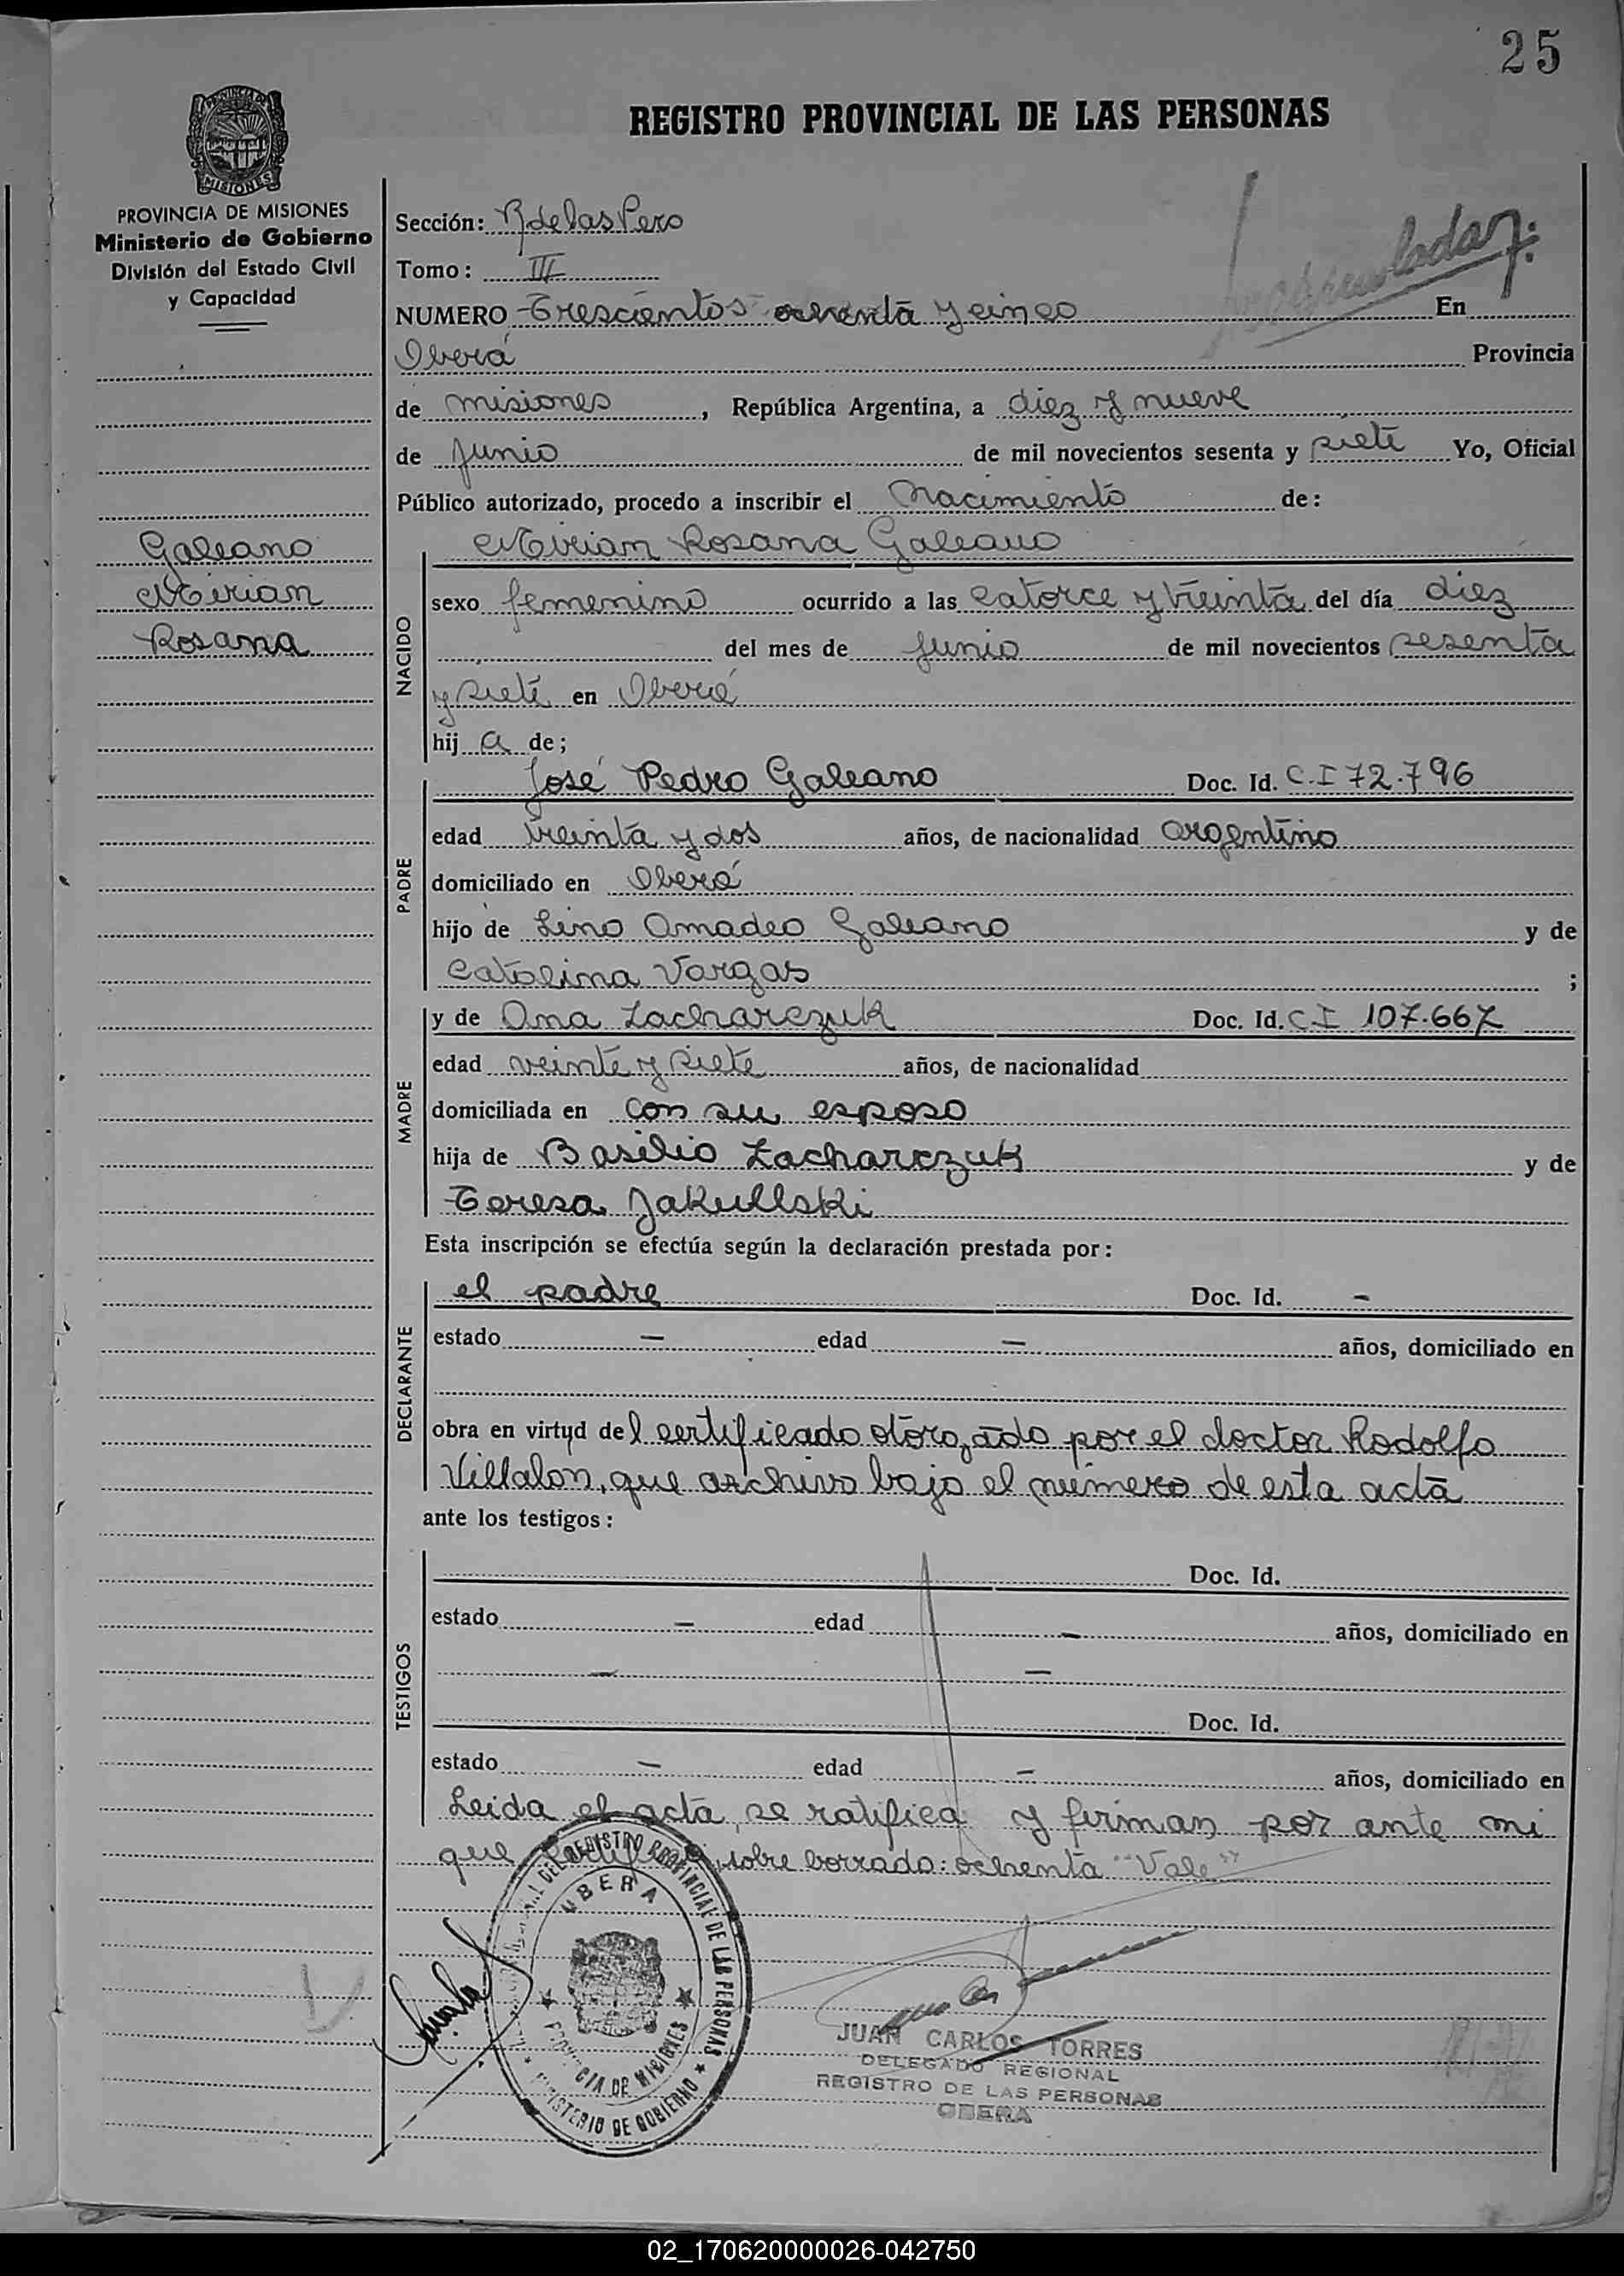 25
REGISTRO PROVINCIAL DE LAS PERSONAS
PROVINCIA DE MISIONES
Ministerio de Gobierno
División del Estado Civil
y Capacidad
Galeano
Mirian
Rosana
Sección: R de las Pers
Tomo: III
NUMERO Trescientos ochenta y cinco En
Oberá Provincia
de misiones, República Argentina, a diez y nueve
de Junio de mil novecientos sesenta y siete Yo, Oficial
Público autorizado, procedo a inscribir el Nacimiento de:
Mirian Rosana Galeano
NACIDO
sexo femenino ocurrido a las catorce y treinta del día diez
del mes de Junio de mil novecientos sesenta
y siete en Oberá
hij a de;
PADRE
José Pedro Galeano Doc. Id. C.I 72.796
edad treinta y dos años, de nacionalidad argentino
domiciliado en Oberá
hijo de Lino Amadeo Galeano y de
Catalina Vargas ;
MADRE
y de Ana Zacharczuk Doc. Id. C I 107.667
edad veinte y siete años, de nacionalidad
domiciliada en con su esposo
hija de Basilio Zacharczuk y de
Teresa Jakullski
Esta inscripción se efectúa según la declaración prestada por:
DECLARANTE
el padre Doc. Id. -
estado - edad - años, domiciliado en
obra en virtud del certificado otorgado por el doctor Rodolfo
Villalón, que archivo bajo el número de esta acta
ante los testigos:
TESTIGOS
Doc. Id.
estado - edad - años, domiciliado en
- -
Doc. Id.
estado - edad - años, domiciliado en
Leida el acta, se ratifica y firman por ante mi
que certifico, sobre borrado: ochenta "Vale"
DEL REGISTRO PROVINCIAL DE LAS PERSONAS
OBERA
PROVINCIA DE MISIONES
MINISTERIO DE GOBIERNO
JUAN CARLOS TORRES
DELEGADO REGIONAL
REGISTRO DE LAS PERSONAS
OBERA
02_170620000026-042750